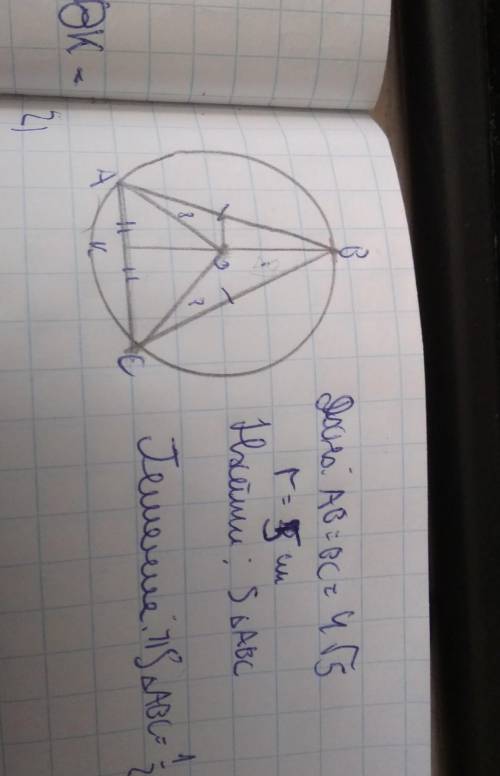 OK =
2)
A
B
C
K
O
Дано: AB = BC = 4√5
r = 5 см
Найти: S△ABC
Решение: 1) S△ABC = 1/2